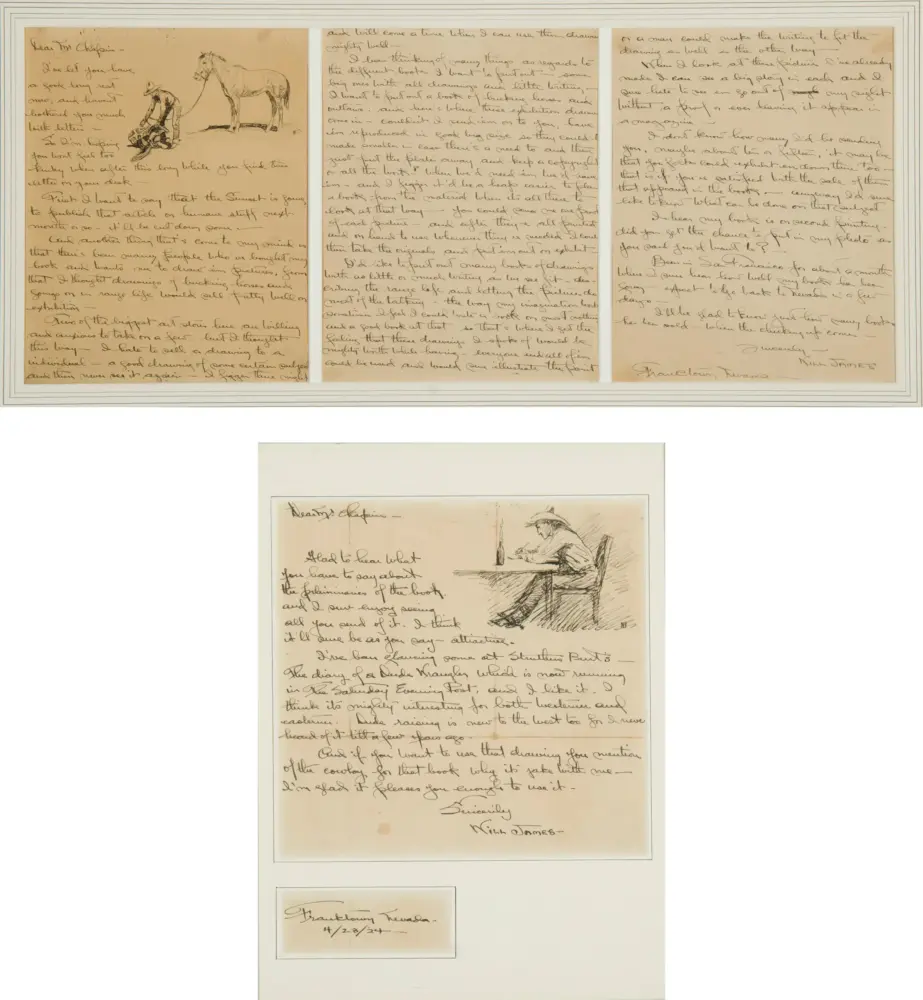 Dear Mr Chapin –
I've let you have
a good long rest
now, and havent
bothered you much
with letters –
So I'm hoping
you wont get too
husky when after this long while you find this
letter on your desk –
First I want to say that the Sunset is going
to publish that article or humans stuff next
month or so – it'll be cut down some –
And another thing that's come to my mind is
that there's been many people who've bought my
book and wants me to draw 'em pictures, from
that I thought drawings of bucking horses and
goings on in range life would sell pretty well on
exhibition –
Few of the biggest art stores here are willing
and anxious to take on a few but I thought
this way – I hate to sell a drawing to a
individual – a good drawing of some certain subject
and then never see it again – I figger there might
and will come a time when I can use them drawings
mighty well –
I been thinking of many things as regards to
the different books I want to put out – some
big ones with all drawings and little writing,
I want to put out a book of bucking horses and
outlaws, and here's where this exhibition
comes in – couldn't I send 'em on to you, have
'em reproduced in good big size so they could be
made smaller in case there's a need to and then
just put the plates away and keep a copyright
on all the work? When we'd need 'em we'd have
'em – and I figger it'd be a heap easier to plan
a book from the material when its all there to
look at that way – you could send me one print
of each picture – and after they're all printed
and on hand to use whenever they're needed I could
then take the originals and put 'em out on exhibit –
I'd like to put out many books of drawings
with as little or much writing as you see fit – des-
cribing the range life and letting the pictures do
most of the talking – the way my imagination works
sometimes I feel I could write a book on most nothing
and a good book at that – so that's where I get the
feeling that these drawings I spoke of would be
mighty worth while having – everyone and all of 'em
could be used and would sure illustrate the point
or a man could make the writing to fit the
drawing as well as the other way –
When I look at these pictures I've already
made I can see a big story in each and I
sure hate to see 'em go out of my sight
without a proof or ever having it appear in
a magazine –
I don't know how many I'd be sending
you, maybe about ten or fifteen, it may be
that you folks could exhibit 'em down there too –
that is if you're satisfied with the sale of them
that appeared in the books, – anyway I'd sure
like to know what can be done on that subject –
I hear my book is on second printing –
did you get the chance to put in my photo as
you said you'd want to?
Been in San Francisco for about a month
where I sure hear how well my book has been
going – expect to go back to Nevada in a few
days –
I'll be glad to know just how many books
has been sold – when the checking up comes –
Sincerely –
Will James
Franktown, Nevada
Dear Mr Chapin –
Glad to hear what
you have to say about
the preliminaries of the book
and I sure enjoy seeing
all you send of it. I think
it'll sure be as you say – attractive.
I've been glancing some at Struthers Burt's –
The diary of a Dude Wrangler which is now running
in The Saturday Evening Post, and I like it. I
think its mighty interesting for both westerner and
easterner. Dude raising is new to the west too for I never
heard of it till a few years ago.
And if you want to use that drawing you mention
of the cowboy for that book why its jake with me –
I'm glad it pleases you enough to use it –
Sincerely
Will James –
Franktown Nevada –
4/28/24 –